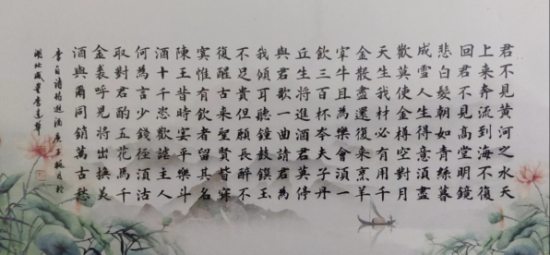 君不見黃河之水天
上來奔流到海不復
回君不見高堂明鏡
悲白髮朝如青絲暮
成雪人生得意須盡
歡莫使金樽空對月
天生我材必有用千
金散盡還復來烹羊
宰牛且為樂會須一
飲三百杯岑夫子丹
丘生將進酒君莫停
與君歌一曲請君為
我傾耳聽鐘鼓饌玉
不足貴但願長醉不
復醒古來聖賢皆寂
寞惟有飲者留其名
陳王昔時宴平樂斗
酒十千恣歡謔主人
何為言少錢徑須沽
取對君酌五花馬千
金裘呼兒將出換美
酒與爾同銷萬古愁
李白詩將進酒庚子秋月於
湖北咸寧李建華